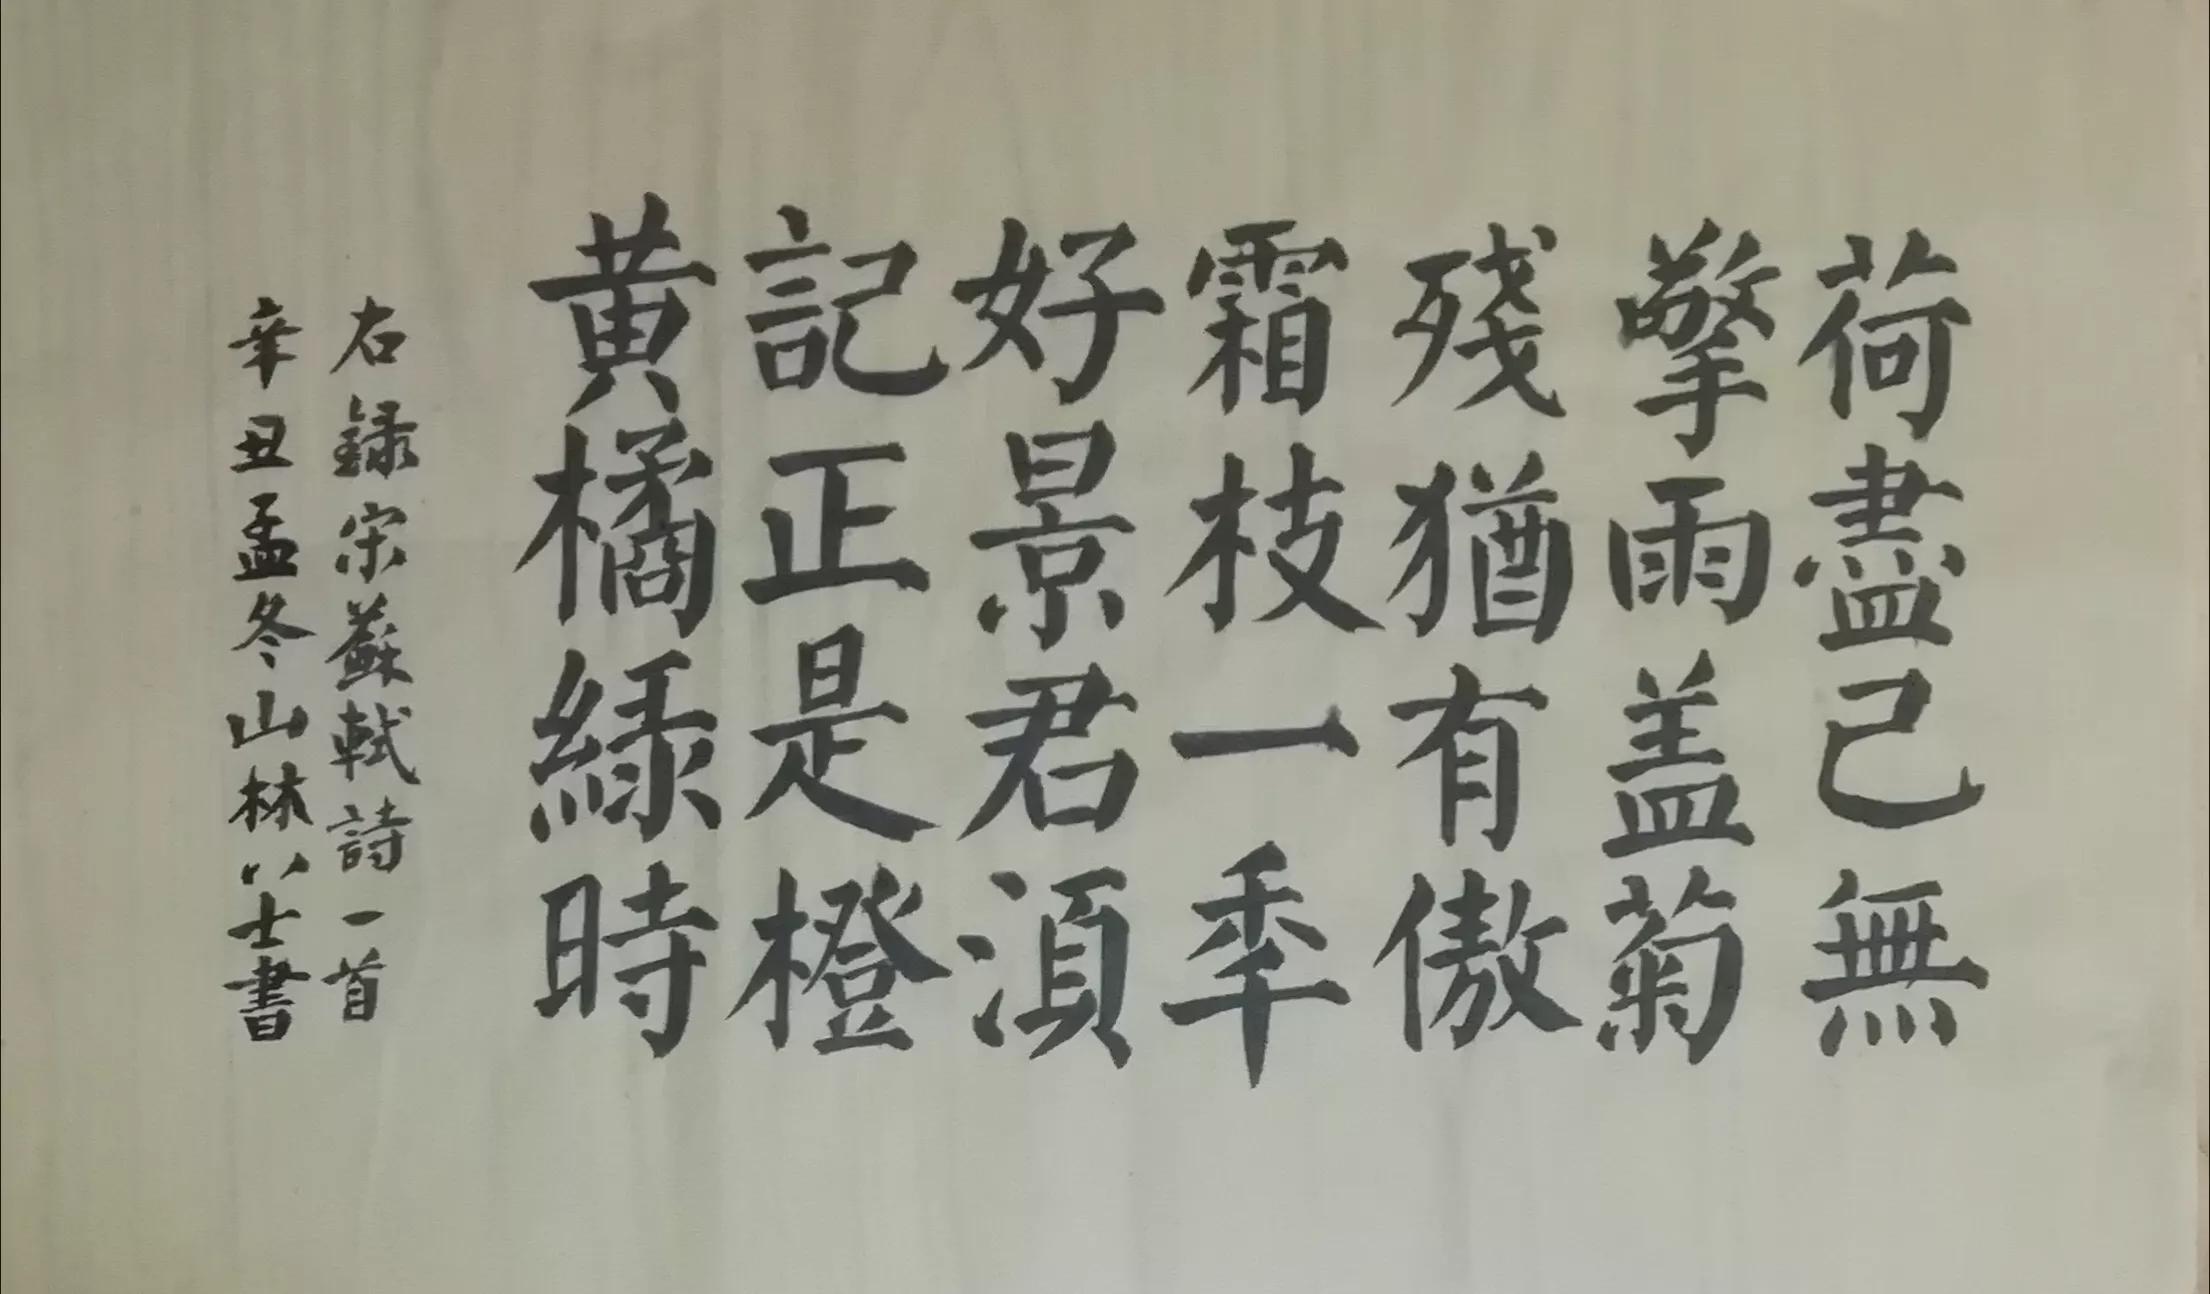 荷盡已無
擎雨蓋菊
殘猶有傲
霜枝一秊
好景君湏
記正是橙
黃橘綠時
右録宋蘇軾詩一首
辛丑孟冬山林八士書